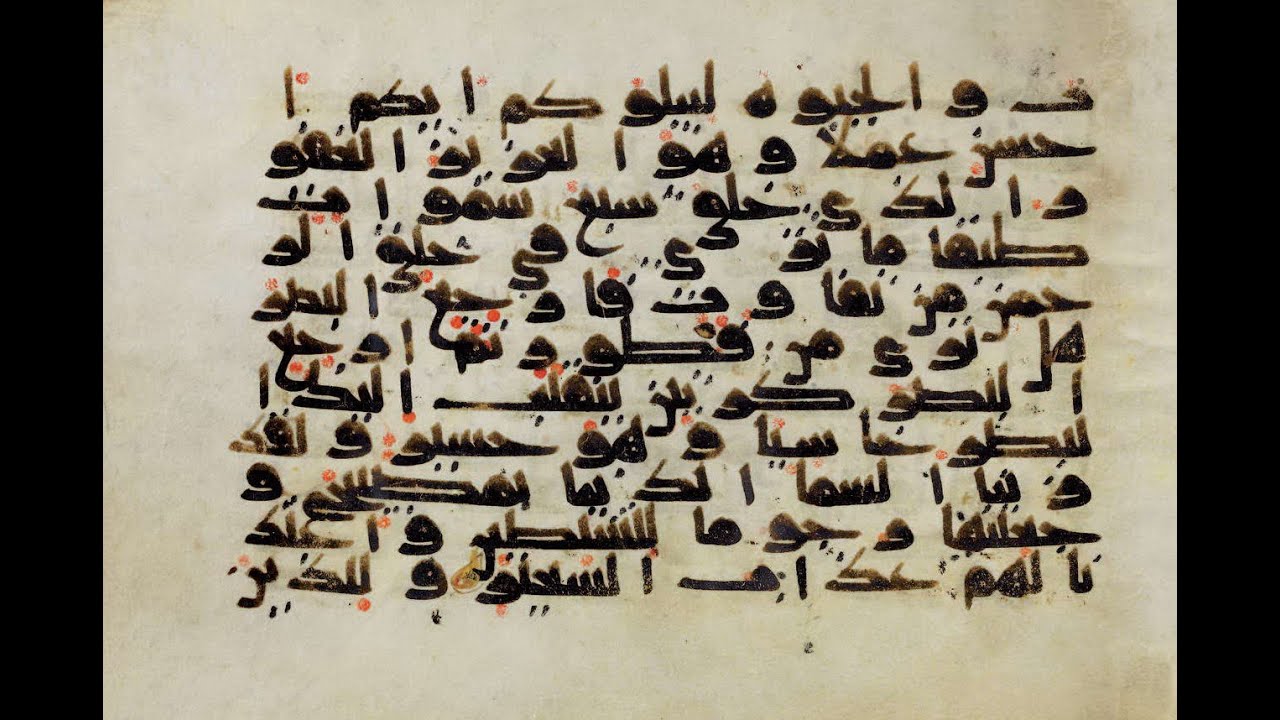 ت والحيوة ليبلوكم ايكم ا
حسن عملا وهو العزيز الغفو
ر الذي خلق سبع سموات
طبقا ما ترى في خلق الر
حمن من تفاوت فارجع البصر
هل ترى من فطور ثم ارجع
البصر كرتين ينقلب اليك ا
لبصر خاسيا وهو حسير ولقد
زينا السما الدنيا بمصبيح و
جعلنها رجوما للشيطين واعتد
نا لهم عذاب السعير وللذين